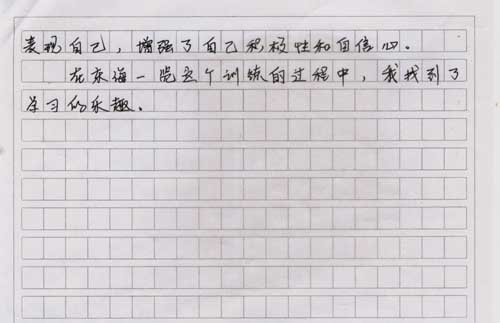 表现自己，增强了自己积极性和自信心。
在东海一院这个训练的过程中，我找到了
学习的乐趣。